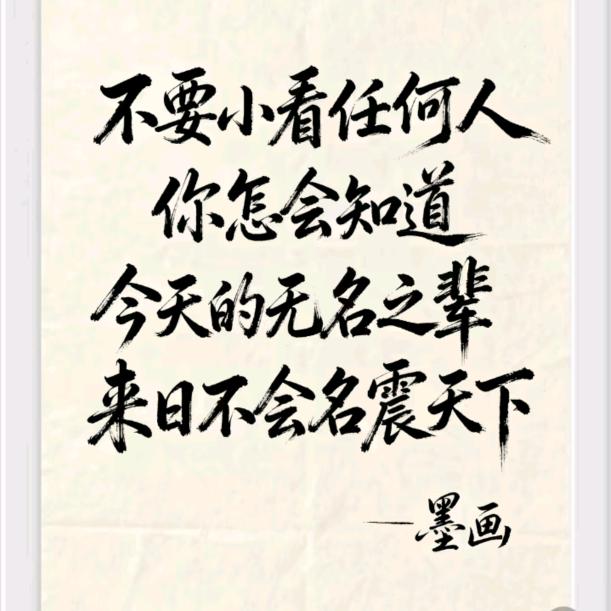 不要小看任何人
你怎会知道
今天的无名之辈
来日不会名震天下
—墨画